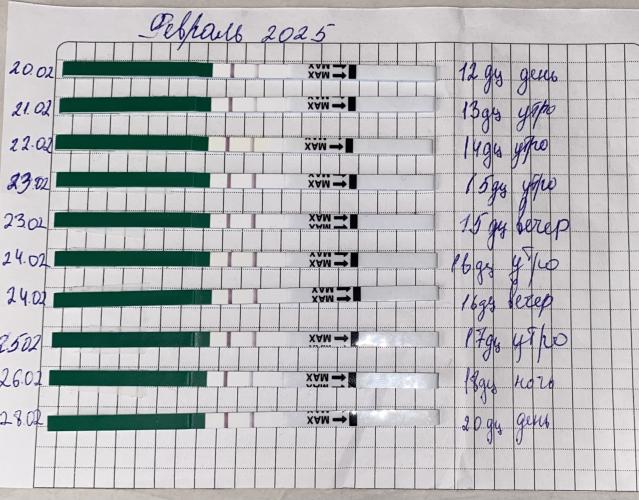 Февраль 2025
20.02 MAX MAX 12 дц день
21.02 MAX 13 дц утро
22.02 MAX 14 дц утро
23.02 MAX 15 дц утро
23.02 MAX 15 дц вечер
24.02 MAX 16 дц утро
24.02 MAX 16 дц вечер
25.02 MAX 17 дц утро
26.02 MAX 18 дц ночь
28.02 MAX 20 дц день